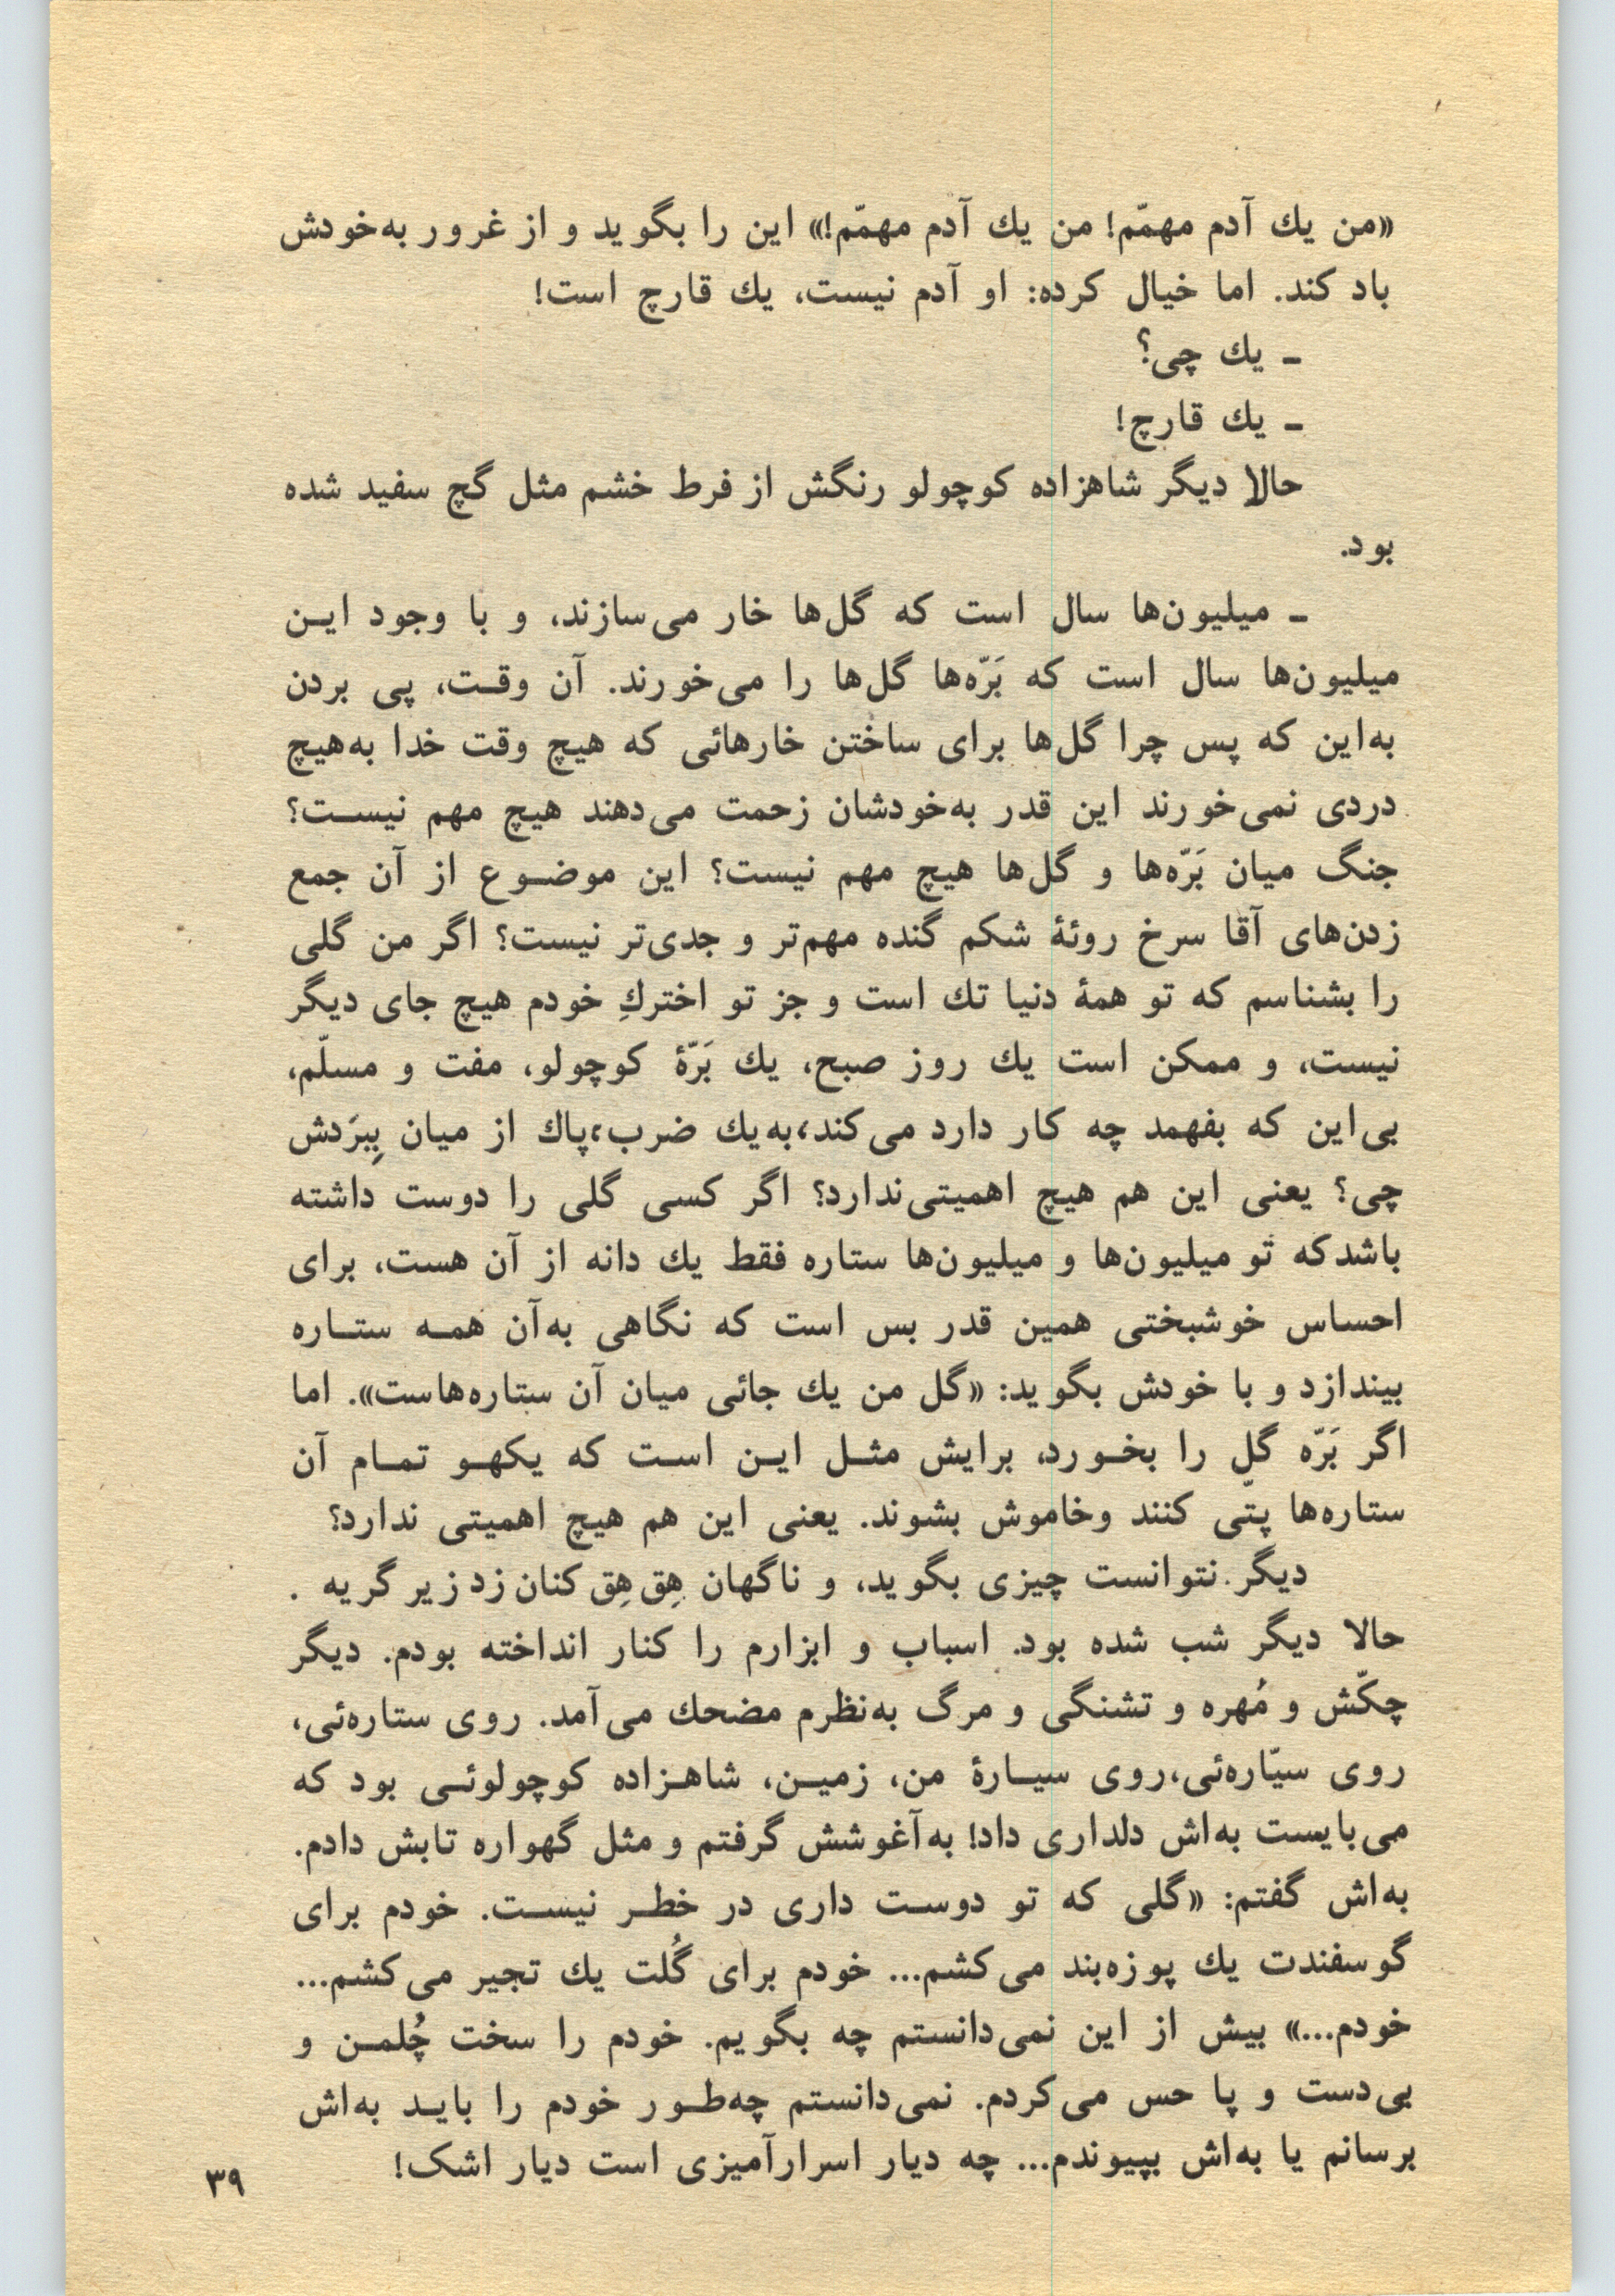 «من یك آدم مهمّم! من یك آدم مهمّم!» این را بگوید و از غرور به‌خودش
باد کند. اما خیال کرده: او آدم نیست، یك قارچ است!
ـ یك چی؟
ـ یك قارچ!
حالا دیگر شاهزاده کوچولو رنگش از فرط خشم مثل گچ سفید شده
بود.
ـ میلیون‌ها سال است که گل‌ها خار می‌سازند، و با وجود ایـن
میلیون‌ها سال است که بَرّه‌ها گل‌ها را می‌خورند. آن وقـت، پی بردن
به‌این که پس چرا گل‌ها برای ساختن خارهائی که هیچ وقت خدا به‌هیچ
دردی نمی‌خورند این قدر به‌خودشان زحمت می‌دهند هیچ مهم نیسـت؟
جنگ میان بَرّه‌ها و گل‌ها هیچ مهم نیست؟ این موضـوع از آن جمع
زدن‌های آقا سرخ روئۀ شکم گنده مهم‌تر و جدی‌تر نیست؟ اگر من گلی
را بشناسم که تو همۀ دنیا تك است و جز تو اختركِ خودم هیچ جای دیگر
نیست، و ممکن است یك روز صبح، یك بَرّۀ کوچولو، مفت و مسلّم،
بی‌این که بفهمد چه کار دارد می‌کند، به‌یك ضرب، پاك از میان بِبرَدش
چی؟ یعنی این هم هیچ اهمیتی‌ندارد؟ اگر کسی گلی را دوست داشته
باشدکه تو میلیون‌ها و میلیون‌ها ستاره فقط یك دانه از آن هست، برای
احساس خوشبختی همین قدر بس است که نگاهی به‌آن همـه ستـاره
بیندازد و با خودش بگوید: «گل من یك جائی میان آن ستاره‌هاست». اما
اگر بَرّه گل را بخـورد، برایش مثـل ایـن اسـت که یکهـو تمـام آن
ستاره‌ها پتّی کنند وخاموش بشوند. یعنی این هم هیچ اهمیتی ندارد؟
دیگر نتوانست چیزی بگوید، و ناگهان هِق‌هِق کنان زد زیر گریه .
حالا دیگر شب شده بود. اسباب و ابزارم را کنار انداخته بودم. دیگر
چکّش و مُهره و تشنگی و مرگ به‌نظرم مضحك می‌آمد. روی ستاره‌ئی،
روی سیّاره‌ئی،روی سیـارۀ من، زمیـن، شاهـزاده کوچولوئـی بود که
می‌بایست به‌اش دلداری داد! به‌آغوشش گرفتم و مثل گهواره تابش دادم.
به‌اش گفتم: «گلی که تو دوسـت داری در خطـر نیسـت. خودم برای
گوسفندت یك پوزه‌بند می‌کشم... خودم برای گُلت یك تجیر می‌کشم...
خودم...» بیش از این نمی‌دانستم چه بگویم. خودم را سخت چُلمـن و
بی‌دست و پا حس می‌کردم. نمی‌دانستم چه‌طـور خودم را بایـد به‌اش
برسانم یا به‌اش بپیوندم... چه دیار اسرارآمیزی است دیار اشک!
۳۹